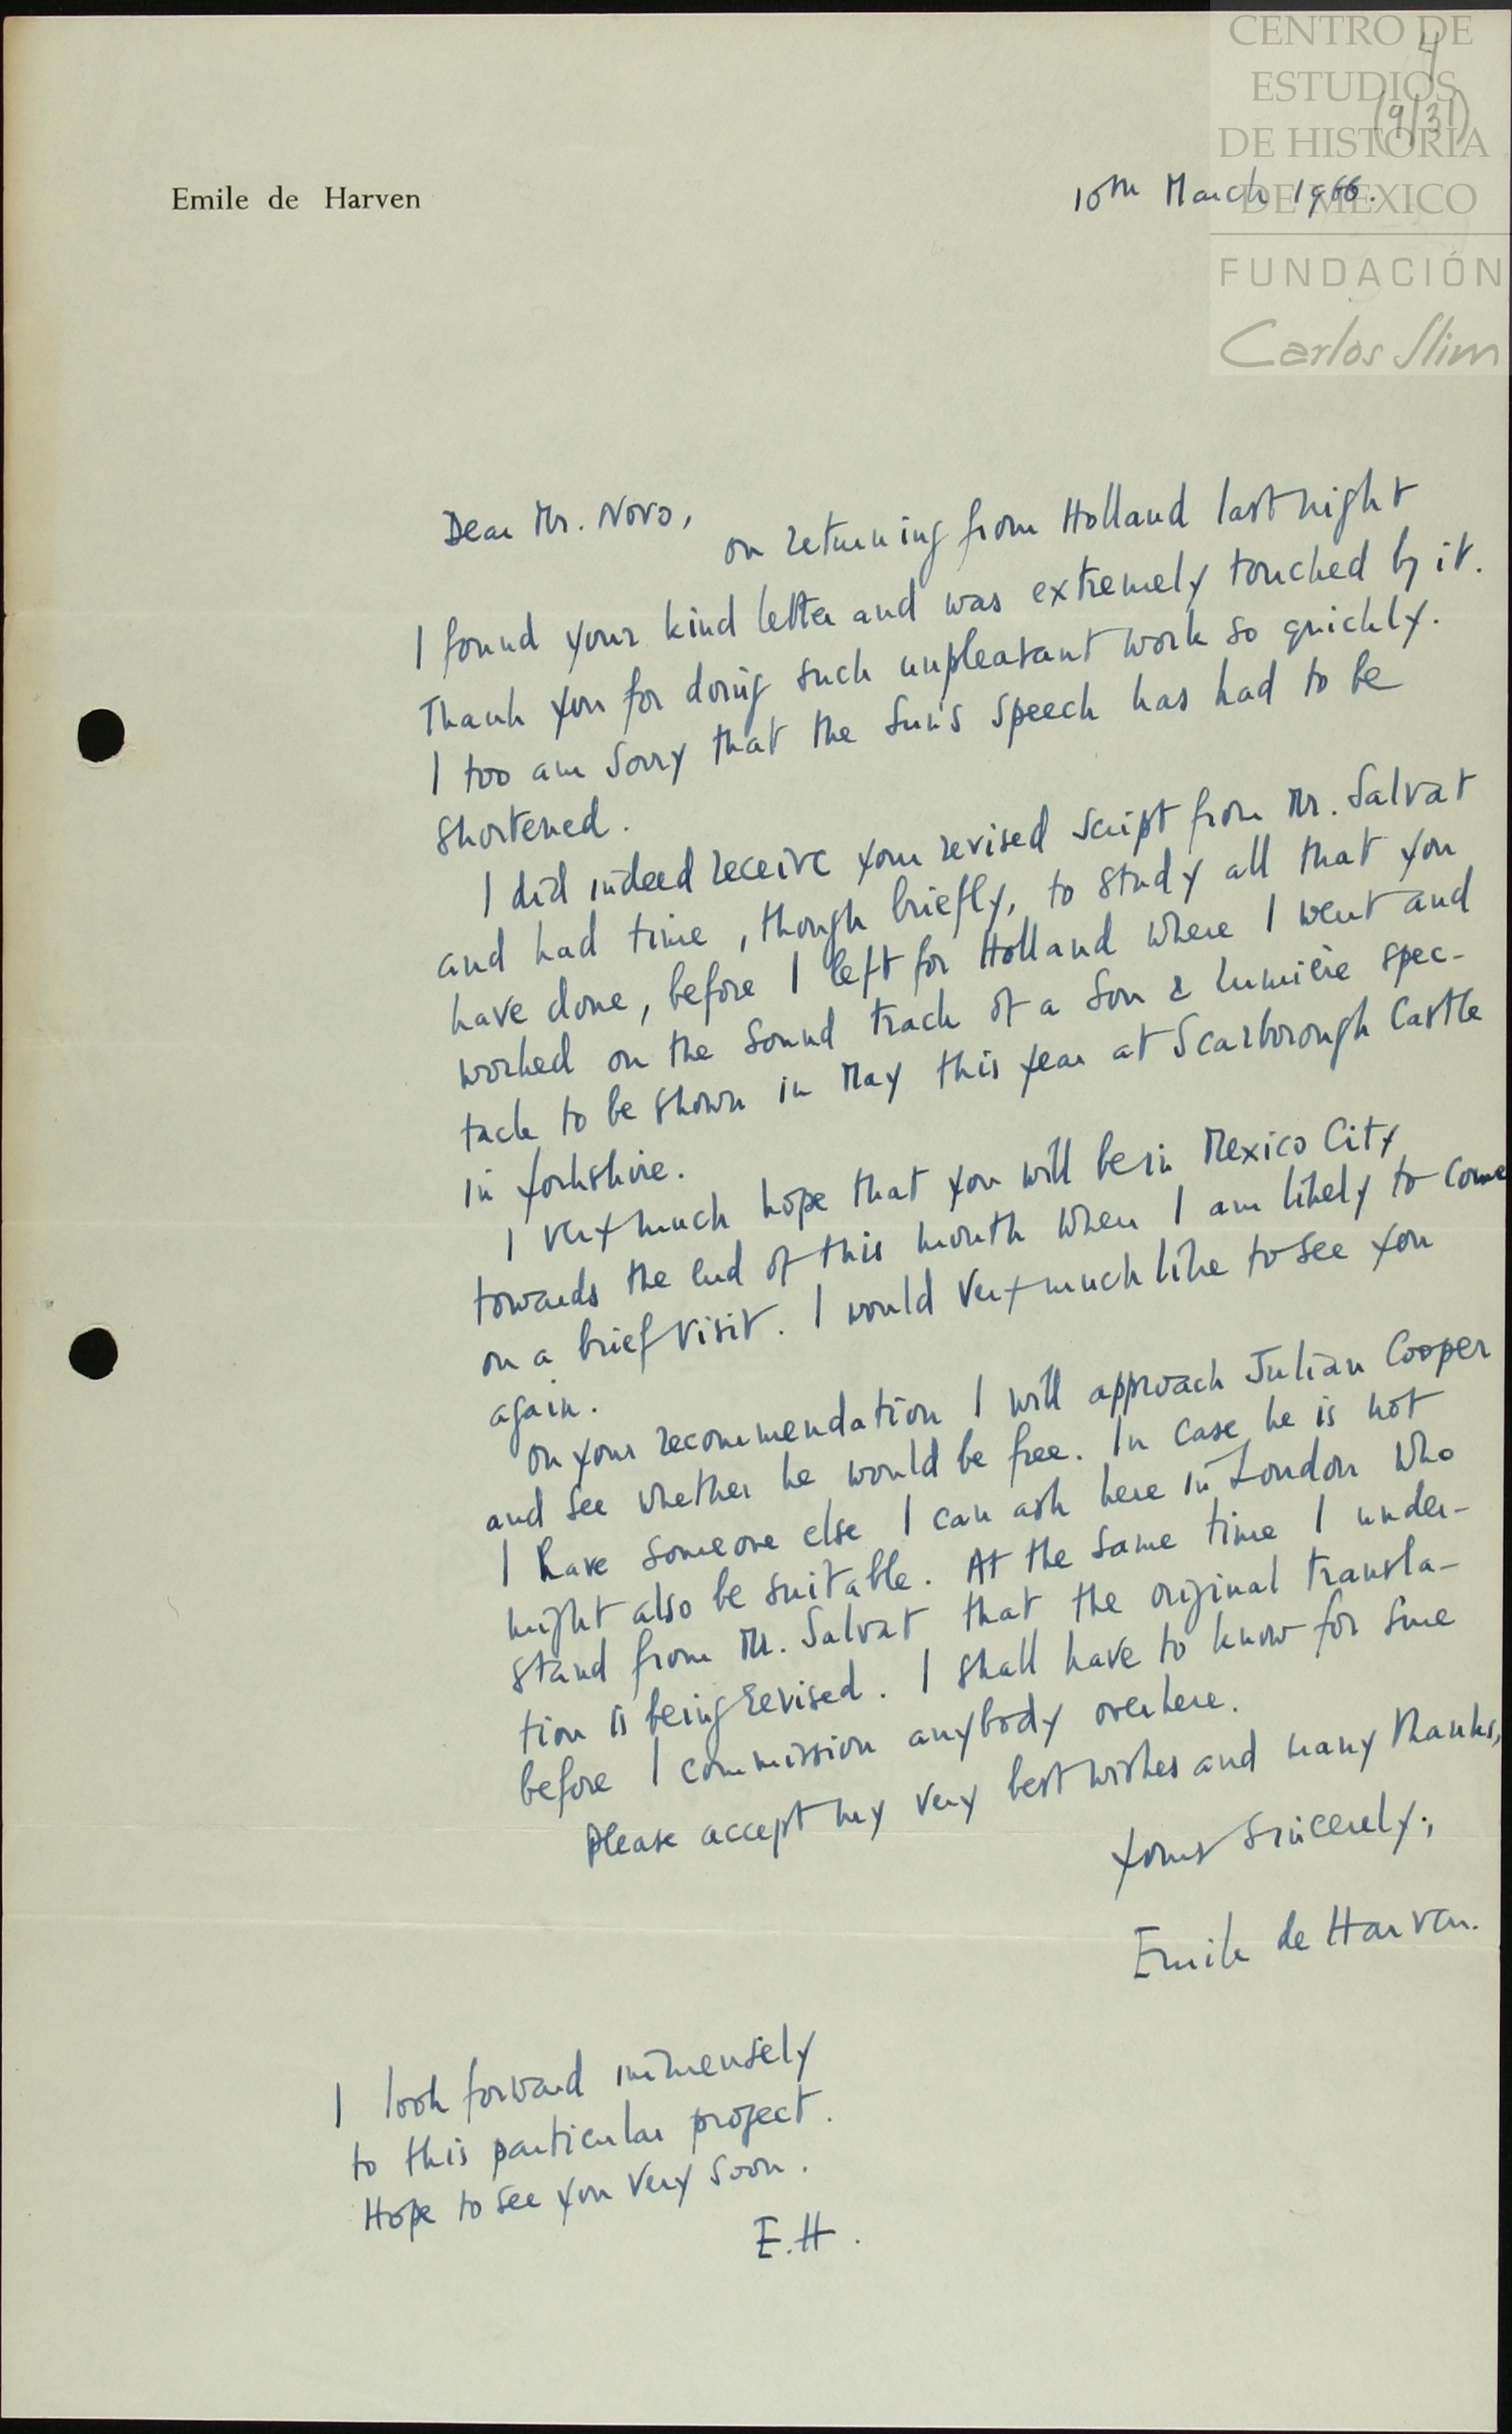 CENTRO DE
ESTUDIOS
DE HISTORIA
DE MÉXICO
FUNDACIÓN
Carlos Slim
4
(9/31)
Emile de Harven
10th March 1966.
Dear Mr. Novo,
on returning from Holland last night
I found your kind letter and was extremely touched by it.
Thank you for doing such unpleasant work so quickly.
I too am sorry that the Sun's speech has had to be
shortened.
I did indeed receive your revised script from Mr. Salvat
and had time, though briefly, to study all that you
have done, before I left for Holland where I went and
worked on the sound track of a Son & Lumière spec-
tacle to be shown in May this year at Scarborough Castle
in Yorkshire.
I very much hope that you will be in Mexico City
towards the end of this month when I am likely to come
on a brief visit. I would very much like to see you
again.
On your recommendation I will approach Julian Cooper
and see whether he would be free. In case he is not
I have someone else I can ask here in London who
might also be suitable. At the same time I under-
stand from Mr. Salvat that the original transla-
tion is being revised. I shall have to know for sure
before I commission anybody over here.
Please accept my very best wishes and many thanks,
Yours sincerely,
Emile de Harven.
I look forward immensely
to this particular project.
Hope to see you very soon.
E.H.